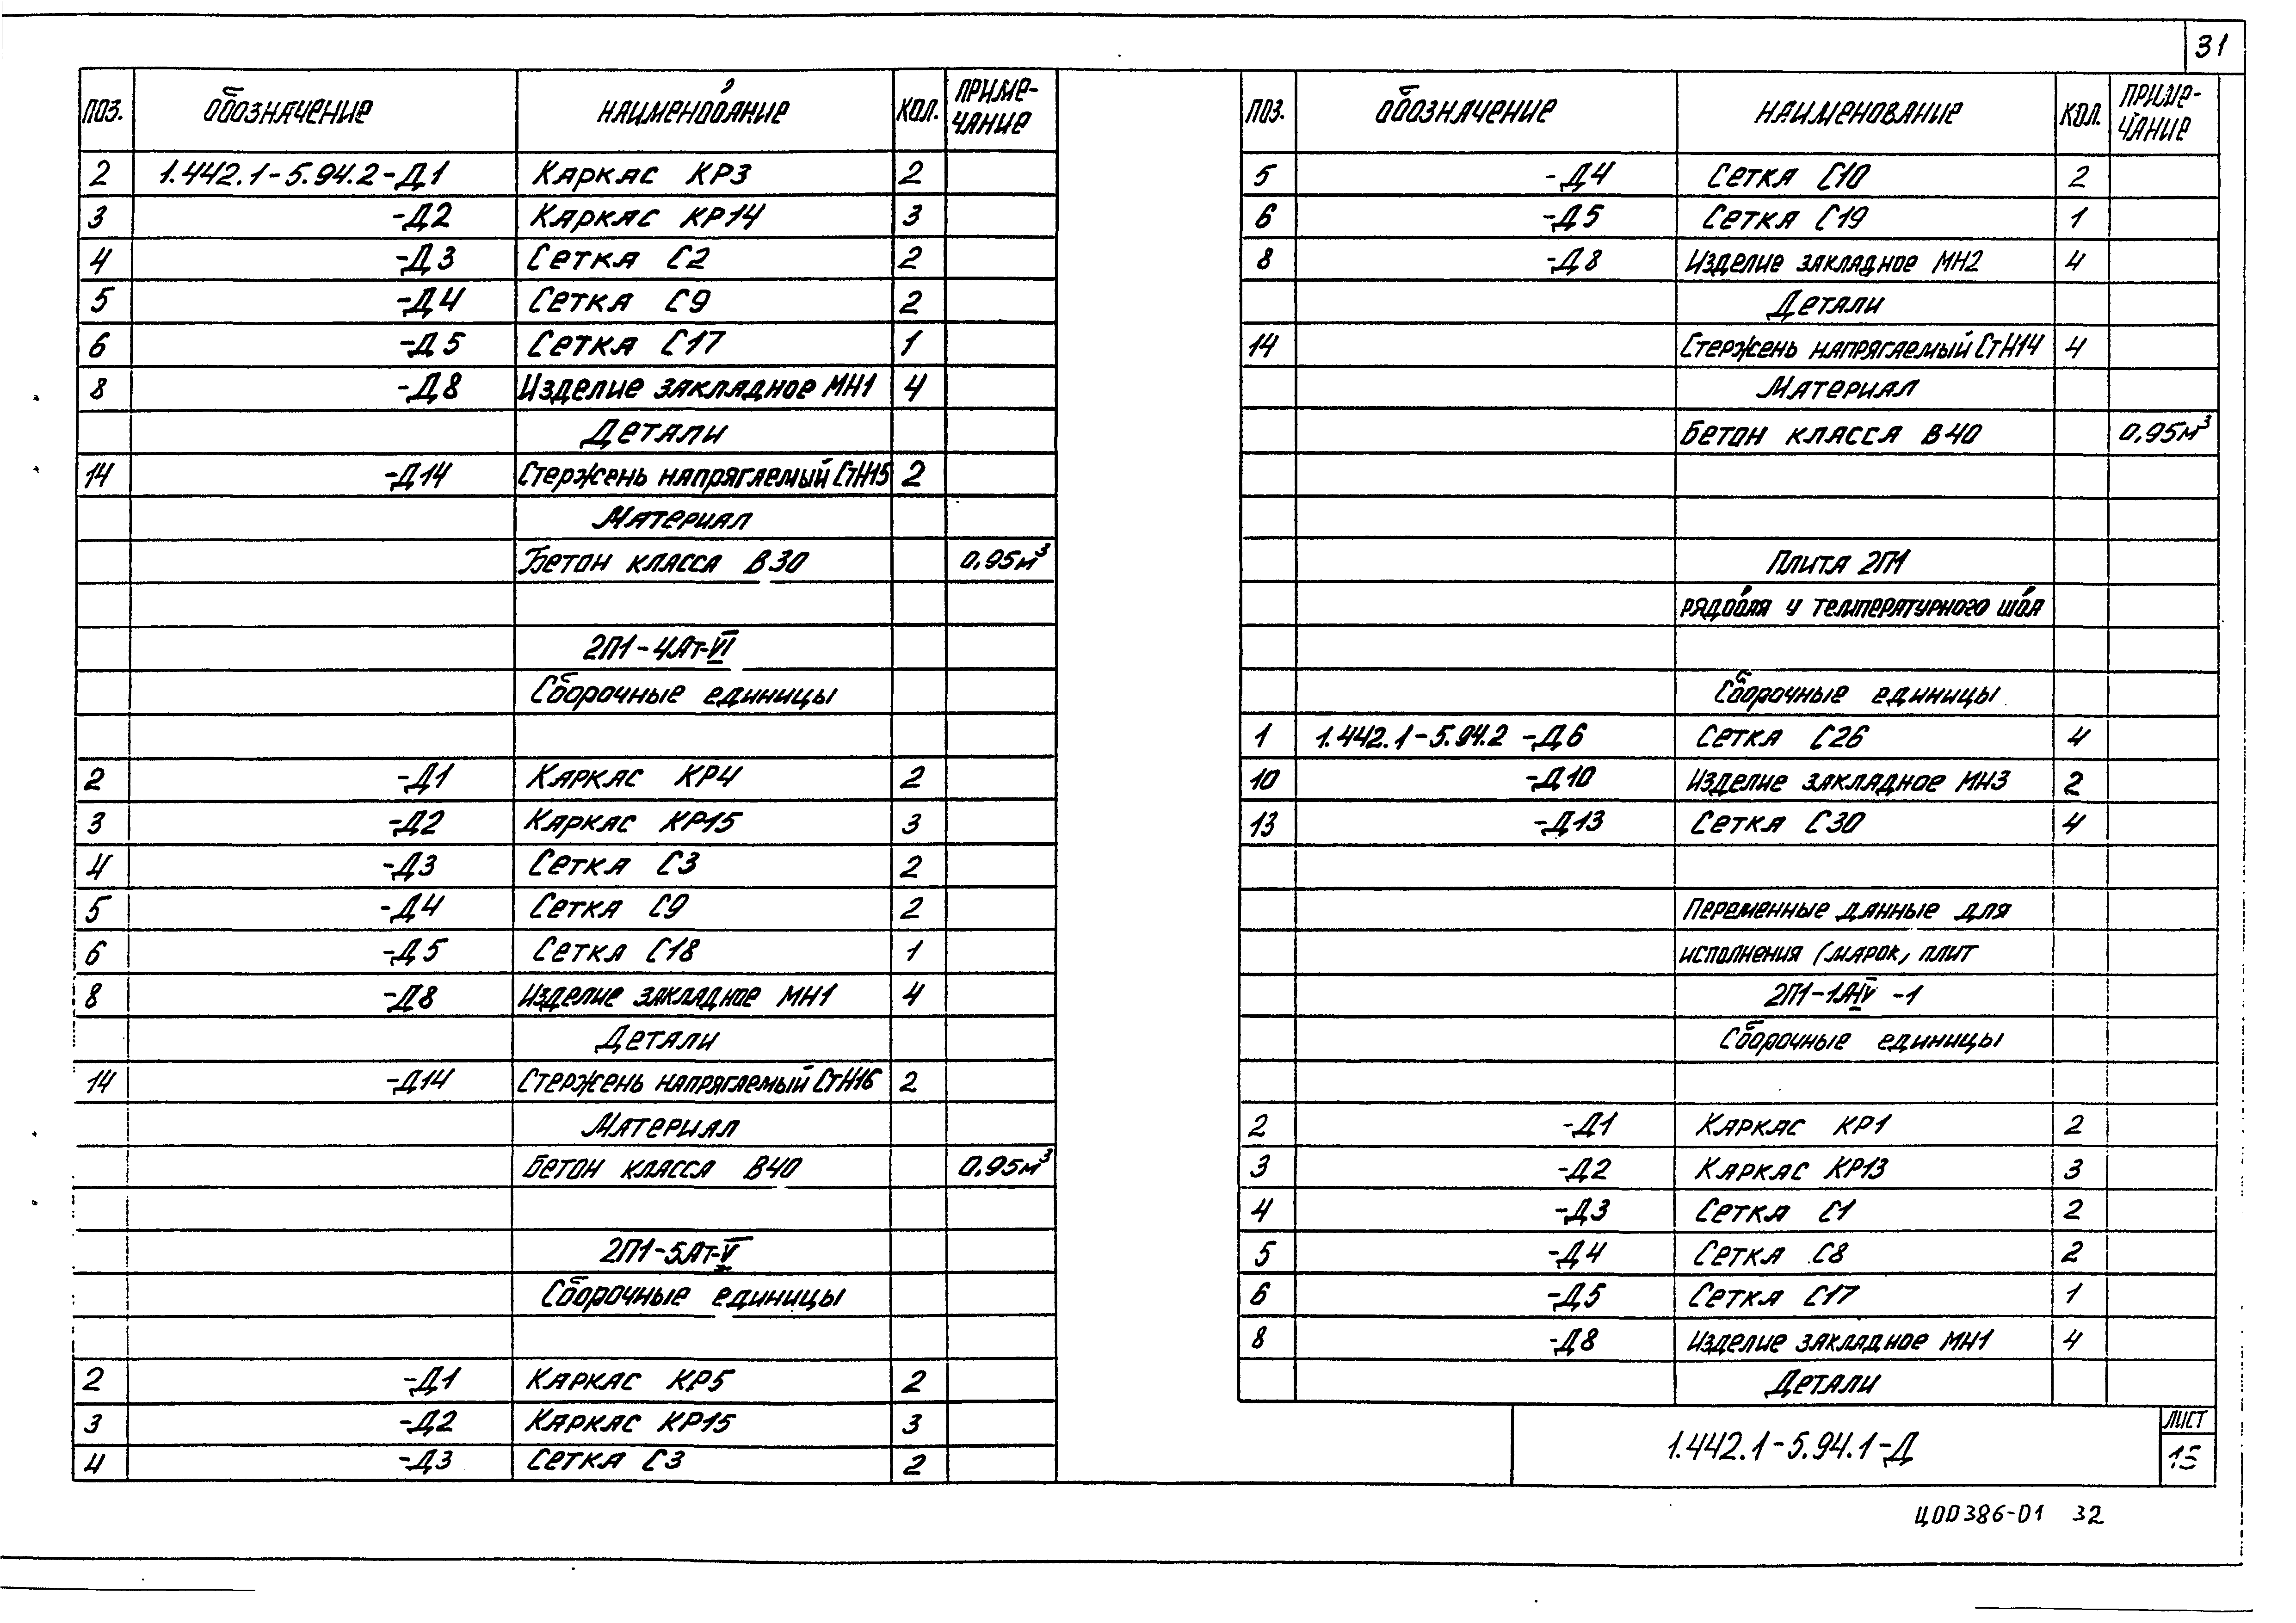 31
ПОЗ. ОБОЗНАЧЕНИЕ НАИМЕНОВАНИЕ КОЛ. ПРИМЕ-
ЧАНИЕ
2 1.442.1-5.94.2-Д1 Каркас КР3 2
3 -Д2 Каркас КР14 3
4 -Д3 Сетка С2 2
5 -Д4 Сетка С9 2
6 -Д5 Сетка С17 1
8 -Д8 Изделие закладное МН1 4
Детали
14 -Д14 Стержень напрягаемый СтН15 2
Материал
Бетон класса В30 0,95м³
2П1-4Ат-VI
Сборочные единицы
2 -Д1 Каркас КР4 2
3 -Д2 Каркас КР15 3
4 -Д3 Сетка С3 2
5 -Д4 Сетка С9 2
6 -Д5 Сетка С18 1
8 -Д8 Изделие закладное МН1 4
Детали
14 -Д14 Стержень напрягаемый СтН16 2
Материал
Бетон класса В40 0,95м³
2П1-5Ат-V
Сборочные единицы
2 -Д1 Каркас КР5 2
3 -Д2 Каркас КР15 3
4 -Д3 Сетка С3 2
ПОЗ. ОБОЗНАЧЕНИЕ НАИМЕНОВАНИЕ КОЛ. ПРИМЕ-
ЧАНИЕ
5 -Д4 Сетка С10 2
6 -Д5 Сетка С19 1
8 -Д8 Изделие закладное МН2 4
Детали
14 Стержень напрягаемый СтН14 4
Материал
Бетон класса В40 0,95м³
Плита 2П1
рядовая у температурного шва
Сборочные единицы
1 1.442.1-5.94.2 -Д6 Сетка С26 4
10 -Д10 Изделие закладное МН3 2
13 -Д13 Сетка С30 4
Переменные данные для
исполнения (марок) плит
2П1-1АIV -1
Сборочные единицы
2 -Д1 Каркас КР1 2
3 -Д2 Каркас КР13 3
4 -Д3 Сетка С1 2
5 -Д4 Сетка С8 2
6 -Д5 Сетка С17 1
8 -Д8 Изделие закладное МН1 4
Детали
1.442.1-5.94.1-Д
ЛИСТ
15
Ц00386-01 32